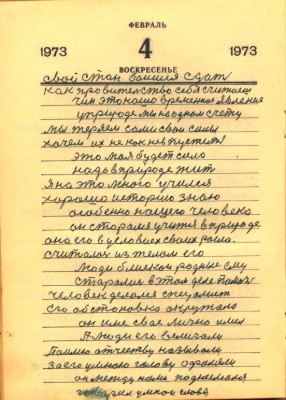 ФЕВРАЛЬ
1973 4 1973
ВОСКРЕСЕНЬЕ
свой стан боимся сдать
как провительство себя считаем
чем это наше временное явление
у природе мы на одном счету
мы теряем сами свои силы
хочем их не как не впустить
это моя будет сила
надь в природе жит
я на это много учился
хорошо историю знаю
особенно нашего человека
он старался учится в природе
она его в условиях своих
считалось из телом его
люди близкои родные ему
старались в этом деле помочь
человек делался специалист
его обстоновка окружала
он име свае лично имел
А люди его величали
поима отчеству называли
за его умного голову
он между нами поднимался
говорил умное слово